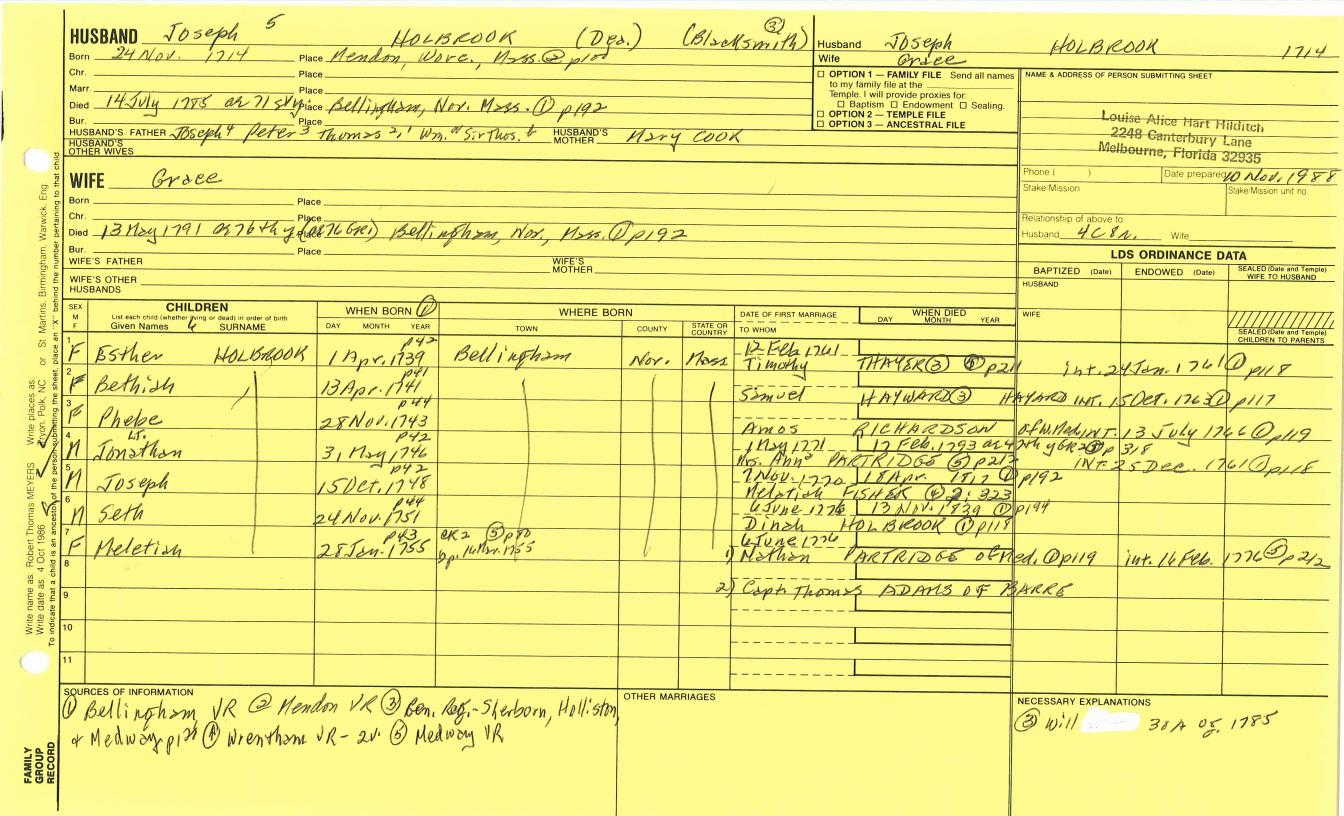 HUSBAND Joseph 5 HOLBROOK (Dea.) (Blacksmith) ③
Born 24 Nov. 1714 Place Mendon, Worc., Mass. ② p100
Chr. Place
Marr. Place
Died 14 July 1785 Place Bellingham, Nor. Mass. ① p192
Bur. Place
HUSBAND'S FATHER Joseph 4 Peter 3 Thomas 2, 1 Wm. Sir Thos. HUSBAND'S MOTHER Mary COOK
HUSBAND'S OTHER WIVES
WIFE Grace
Born Place
Chr. Place
Died 13 May 1791 ae 76th y (ae 76 GR1) Place Bellingham, Nor., Mass. ① p192
Bur. Place
WIFE'S FATHER WIFE'S MOTHER
WIFE'S OTHER HUSBANDS
Husband Joseph HOLBROOK 1714
Wife Grace
OPTION 1 — FAMILY FILE Send all names
to my family file at the
Temple. I will provide proxies for:
Baptism Endowment Sealing.
OPTION 2 — TEMPLE FILE
OPTION 3 — ANCESTRAL FILE
NAME & ADDRESS OF PERSON SUBMITTING SHEET
Louise Alice Hart Hilditch
2248 Canterbury Lane
Melbourne, Florida 32935
Phone ( ) Date prepared 10 Nov. 1988
Stake Mission Stake/Mission unit no.
Relationship of above to
Husband 4C8r. Wife
LDS ORDINANCE DATA
BAPTIZED (Date) ENDOWED (Date) SEALED (Date and Temple) WIFE TO HUSBAND
HUSBAND
WIFE
SEALED (Date and Temple) CHILDREN TO PARENTS
SEX M F
CHILDREN
List each child (whether living or dead) in order of birth
Given Names SURNAME
WHEN BORN ①
DAY MONTH YEAR
WHERE BORN
TOWN COUNTY STATE OR COUNTRY
DATE OF FIRST MARRIAGE
TO WHOM
WHEN DIED
DAY MONTH YEAR
1 F Esther HOLBROOK 1 Apr. 1739 p42 Bellingham Nor. Mass 12 Feb. 1761
Timothy THAYER (3) ⑤ p211 int. 24 Jan. 1761 ① p118
2 F Bethiah 13 Apr. 1741 p41
Simuel HAYWARD ③ HAYARD INT. 15 Oct. 1763 ① p117
3 F Phebe 28 Nov. 1743 p44
Amos RICHARDSON of Med. INT. 13 July 1766 ① p119
4 M Lt. Jonathan 31 May 1746 p42 1 May 1771 17 Feb. 1793 p318
Mrs. Anna PARTRIDGE ⑤ p212 INT. 25 Dec. 1761 ① p118
5 M Joseph 15 Oct. 1748 p42 7 Nov. 1770 18 Apr. ① p192
Melatiah FISHER ④ 2: 323
6 M Seth 24 Nov. 1751 p44 6 June 1776 13 Nov. 1839 ① p194
Dinah HOLBROOK ① p118
7 F Meletiah 28 Jan. 1755 p43 CR2 ⑤ p80 bp. 16 Mar. 1755 6 June 1776
1) Nathan PARTRIDGE of Med. ① p119 int. 16 Feb. 1776 ⑤ p212
8
2) Capt. Thomas ADAMS OF BARRE
9
10
11
SOURCES OF INFORMATION
① Bellingham VR ② Mendon VR ③ Gen. Reg.-Sherborn, Holliston,
& Medway p128 ④ Wrentham VR- 2v. ⑤ Medway VR
OTHER MARRIAGES
NECESSARY EXPLANATIONS
③ Will 30 Aug. 1785
FAMILY GROUP RECORD
Write name as Robert Thomas MEYERS Write places as Avon, Polk, NC or St. Martins, Birmingham, Warwick, Eng
Write date as 4 Oct 1986
To indicate that a child is an ancestor of the person submitting the sheet, place an "X" behind the number pertaining to that child